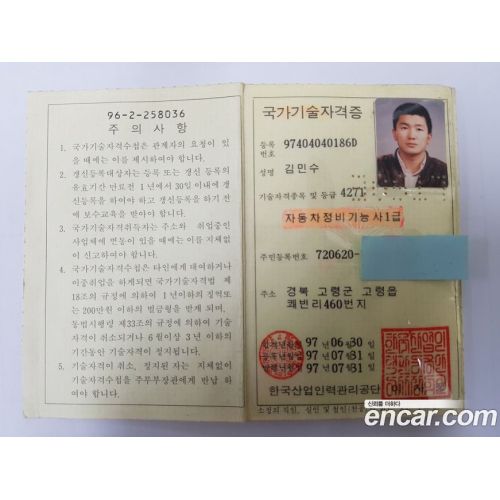 96-2-258036
주 의 사 항
1. 국가기술자격수첩은 관계자의 요청이 있
을 때에는 이를 제시하여야 합니다.
2. 갱신등록대상자는 등록 또는 갱신 등록의
유효기간 만료전 1년에서 30일 이내에 갱
신등록을 하여야 하고 갱신등록을 하기 전
에 보수교육을 받아야 합니다.
3. 국가기술자격취득자는 주소와 취업중인
사업체에 변동이 있을 때에는 이를 지체없
이 신고하여야 합니다.
4. 국가기술자격수첩은 타인에게 대여하거나
이중취업을 하게되면 국가기술자격법 제
18조의 규정에 의하여 1년이하의 징역또
는 200만원 이하의 벌금형을 받게 되며,
동법시행령 제33조의 규정에 의하여 기술
자격이 취소되거나 6월이상 3년 이하의
기간동안 기술자격이 정지됩니다.
5. 기술자격이 취소, 정지된 자는 지체없이
기술자격수첩을 주무부장관에게 반납 하
여야 합니다.
국가기술자격증
등록
번호 97404040186D
성명 김민수
기술자격종목 및 등급 4271
자동차정비기능사1급
주민등록번호 720620-
주소 경북 고령군 고령읍
쾌빈리460번지
합격년월일 97년 06월 30일
등록년월일 97년 07월 31일
발행년월일 97년 07월 31일
한국산업인력관리공단
소정의 직인, 실인 및 철인(천공
신뢰를 더하다
encar.com